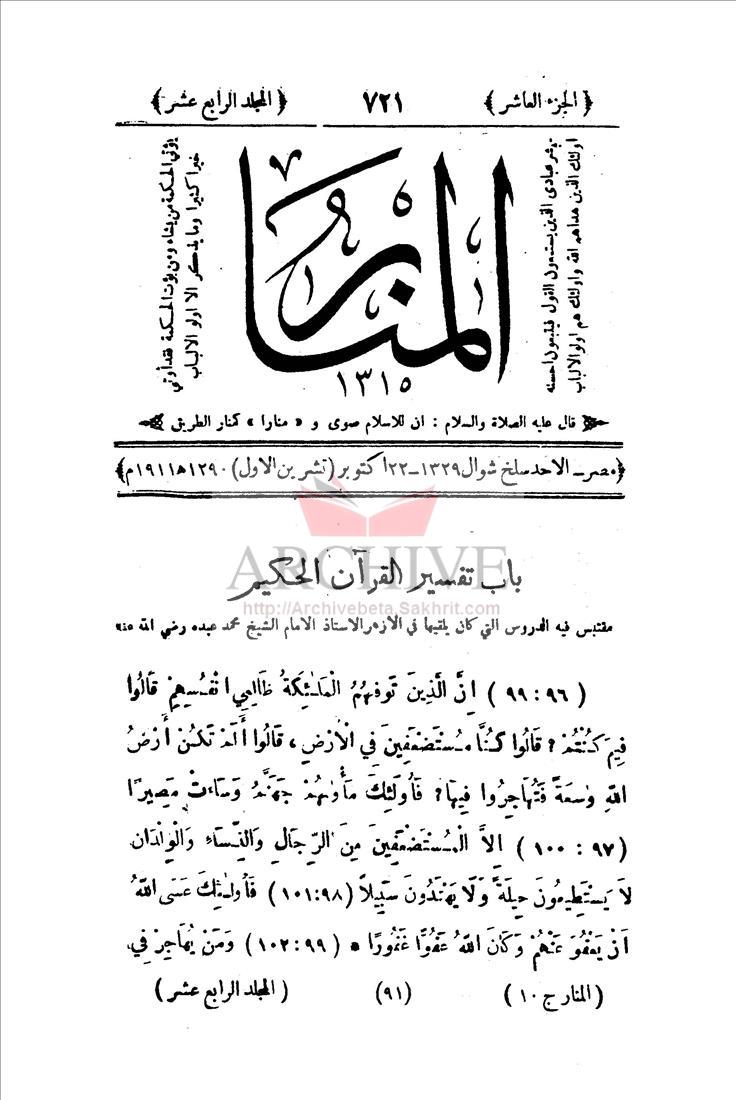 ﴿ الجزء العاشر ﴾ ٧٢١ ﴿ المجلد الرابع عشر ﴾
يبشر عبادي الذين يستمعون القول فيتبعون احسنه
اولئك الذين هداهم الله واولئك هم اولو الالباب
المنار
١٣١٥
يؤتي الحكمة من يشاء ومن يؤت الحكمة فقد أوتي
خيرا كثيرا وما يذكر الا اولو الالباب
قال عليه الصلاة والسلام : ان للاسلام صوى و « منارا » كمنار الطريق
﴿ مصر ــ الاحد سلخ شوال ١٣٢٩ ــ ٢٢ اكتوبر (تشرين الاول) ١٢٩٠ ه‍ ١٩١١ م ﴾
ARCHIVE
باب تفسير القرآن الحكيم
http://Archivebeta.Sakhrit.com
مقتبس فيه الدروس التي كان يلقيها في الازهر الاستاذ الامام الشيخ محمد عبده رضي الله عنه
( ٩٩:٩٦ ) إِنَّ الَّذِينَ تَوَفّٰهُمُ الْمَلٰئِكَةُ ظَالِمِي أَنْفُسِهِمْ قَالُوا
فِيمَ كُنْتُمْ ؟ قَالُوا كُنَّا مُسْتَضْعَفِينَ فِي الْأَرْضِ ، قَالُوا أَلَمْ تَكُنْ أَرْضُ
اللهِ وٰسِعَةً فَتُهَاجِرُوا فِيهَا ؟ فَأُولٰئِكَ مَأْوٰىهُمْ جَهَنَّمُ وَسَاءَتْ مَصِيرًا
( ١٠٠:٩٧ ) إِلَّا الْمُسْتَضْعَفِينَ مِنَ الرِّجَالِ وَالنِّسَاءِ وَالْوِلْدَانِ
لَا يَسْتَطِيعُونَ حِيلَةً وَلَا يَهْتَدُونَ سَبِيلاً (١٠١:٩٨) فَأُولٰئِكَ عَسَى اللهُ
أَنْ يَعْفُوَ عَنْهُمْ وَكَانَ اللهُ عَفُوًّا غَفُورًا * (١٠٢:٩٩) وَمَنْ يُهَاجِرْ فِي
( المنار ج ١٠ ) (٩١) ( المجلد الرابع عشر )